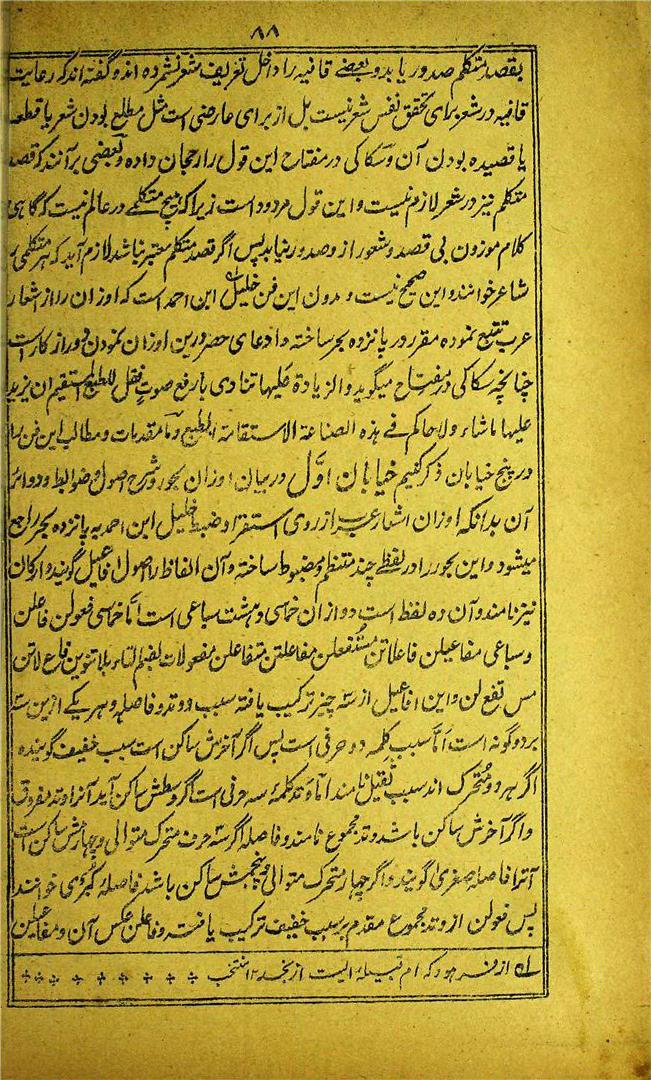 ۸۸
بقصد متکلم صدور یابد و بعضے قافیه را داخل تعریف شعر نشمرده اند و گفته اند که رعایت
قافیه در شعر برای تحقق نفس شعر نیست بل از برای عارضی است مثل مطلع بودن شعر یا قطعه
یا قصیده بودن آن و سکاکی در مفتاح این قول را رجحان داده و بعضی برآنند که قصد
متکلم نیز در شعر لازم نیست و این قول مردود است زیرا که هیچ متکلمے در عالم نیست که گاهی
کلام موزون بی قصد و شعور از و صدور نیابد پس اگر قصد متکلم معتبر نباشد لازم آید که هر متکلمی را
شاعر خوانند و این صحیح نیست و مدون این فن خلیل ابن احمد است که اوزان را از اشعار
عرب تتبع نموده مقرر در پانزده بحر ساخته و ادعای حصر درین اوزان نمودن دور از کار است
چنانچه سکاکی در مفتاح میگوید والزیادة علیها تنادی بارفع صوت فقل للطبع المستقیم ان یزید
علیها ماشاء ولا حاکم فے هذه الصناعة الا استقامة الطبع و ما مقدمات و مطالب این فن را
در پنج خیابان ذکر کنیم خیابان اوّل در بیان اوزان بحور و شرح اصول و ضوابط و دوائر
آن بدانکه اوزان اشعار عرب از روی استقراء و ضبط خلیل ابن احمد به پانزده بحر راجع
میشود و این بحور را در لفظے چند منتظم و مضبوط ساخته و آن الفاظ را اصول افاعیل گویند و ارکان
نیز نامند و آن ده لفظ است دو ازان خماسی و هشت سباعی است امّا خماسی فعولن فاعلن
و سباعی مفاعیلن فاعلاتن مستفعلن مفاعلتن متفاعلن مفعولات بضم التاء بلا تنوین فاع لاتن
مس تفع لن و این افاعیل از سه چیز ترکیب یافته سبب و وتد و فاصله و هر یکے ازین سه
بر دو گونه است امّا سبب کلمه دو حرفی است پس اگر آخرش ساکن است سبب خفیف گویند و
اگر هر دو متحرک اند سبب ثقیل نامند اما وتد کلمهٔ سه حرفی است اگر وسطش ساکن آید آنرا وتد مفروق
و اگر آخرش ساکن باشد وتد مجموع نامند و فاصله اگر سه حرف متحرک متوالی و چهارمش ساکن است
آنرا فاصلهٔ صغریٰ گویند و اگر چهار متحرک متوالی و پنجمش ساکن باشد فاصلهٔ کبریٰ خوانند
پس فعولن از وتد مجموع مقدم بر سبب خفیف ترکیب یافته و فاعلن عکس آن و مفاعیلن
له از فرهود که ام قبیله ایست از یحمد ۱۲ منتخب